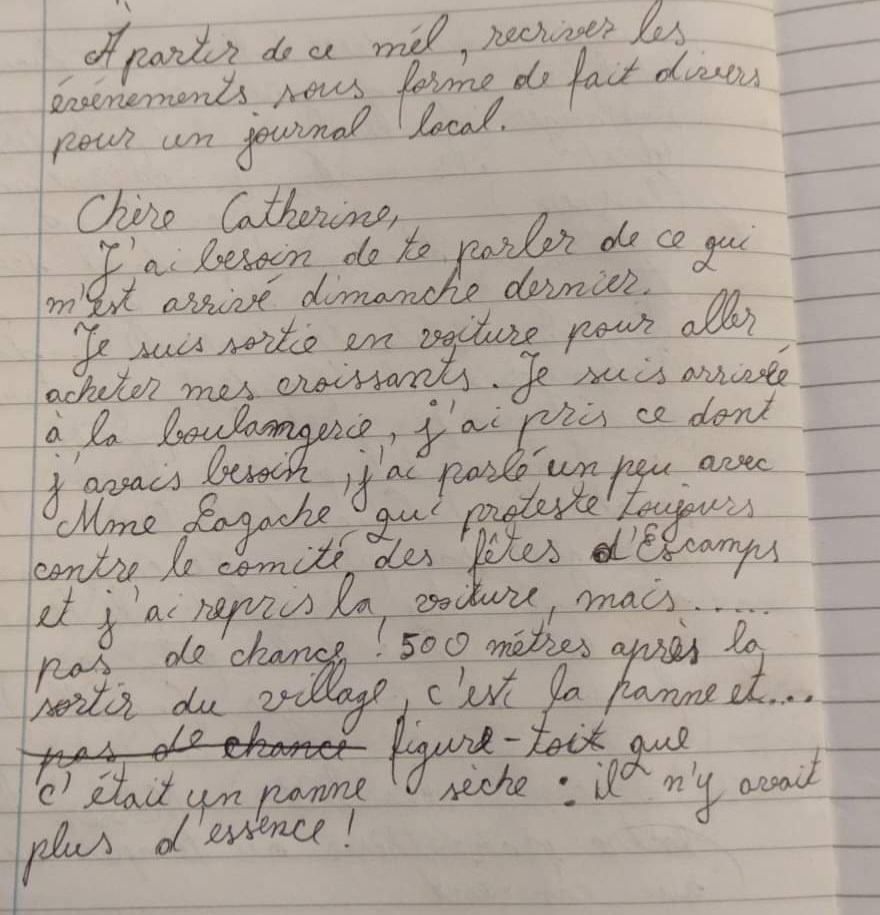 A partir de ce mél, recriver les
événements sous forme de fait divers
pour un journal local.
Chère Catherine,
J'ai besoin de te parler de ce qui
m'est arrivé dimanche dernier.
Je suis sortie en voiture pour aller
acheter mes croissants. Je suis arrivée
à la boulamgerie, j'ai pris ce dont
j'avais besoin, j'ai parlé un peu avec
Mme Lagache qui proteste toujours
contre le comité des fêtes d'Escamps
et j'ai repris la voiture, mais.....
pas de chance ! 500 métres après la
sortir du village, c'est la panne et...
pas de chance figure-toit que
c'était un panne sèche : il n'y avait
plus d'essence !